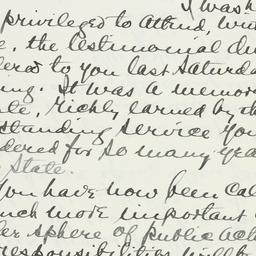 I was h
privileged to attend, wit
e, the testimonial din
dered to you last Saturda
ng. It was a memor
te, richly earned by th
standing service you
dered for so many yea
State.
You have now been cal
uch more important
er sphere of public acti
responsibilities will be